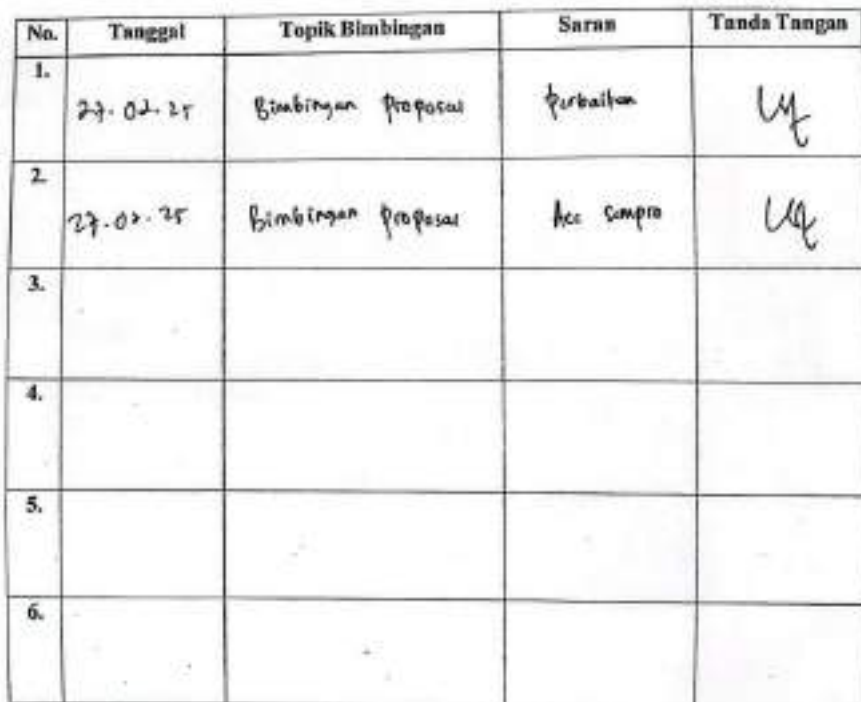 No. Tanggal Topik Bimbingan Saran Tanda Tangan
1.
27.02.25 Bimbingan Proposal Perbaikan
2.
27.02.25 Bimbingan Proposal Acc Sempro
3.
4.
5.
6.